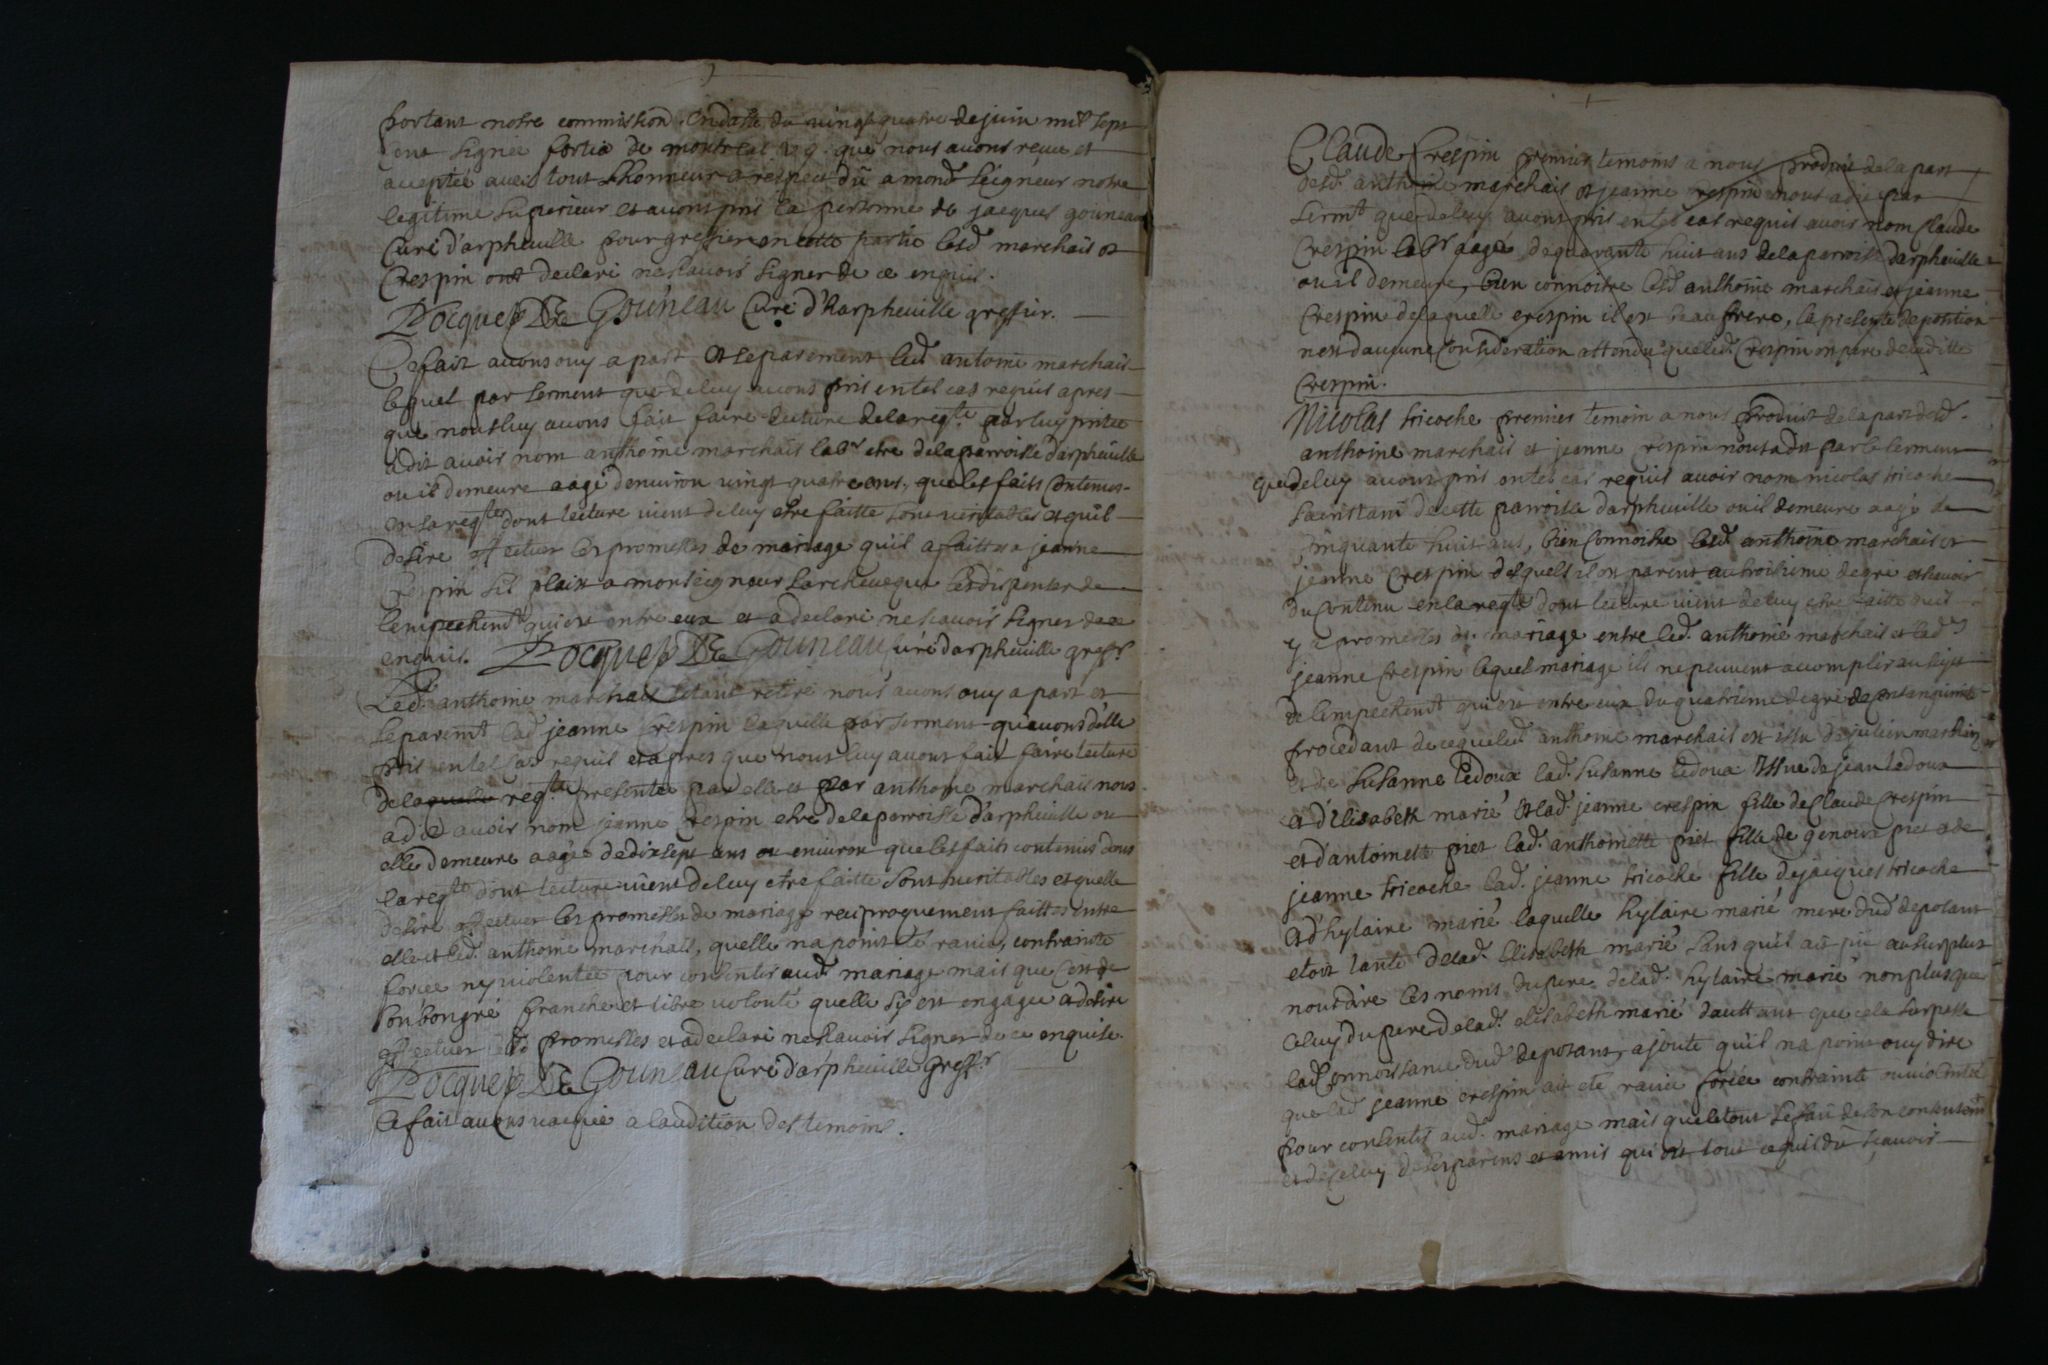 portant notre commission en datte du vingt quatre de juin mil sept
cent signée fortia de montreal v. g. que nous avons reçue et
aceptée avec tout lhonneur et respect dû a mond. seigneur notre
legitime superieur et avons pris la personne de jacques gouneau
Curé d'arpheuille pour greffier en cette partie lesd. marchais et
Crespin ont declaré ne scavoir signer de ce enquis.
Pocquet De Gouneau Curé d'Harpheuille greffier.
Ce fait avons ouy a part et separement led. antoine marchais
lequel par serment que de luy avons pris en tel cas requis apres
que nous luy avons fait faire lecture de la reqte. par luy prntee
a dit avoir nom anthoine marchais labr. etre de la parroisse darpheuille
ou il demeure aagé denviron vingt quatre ans, que les faits contenus
en sa reqte dont lecture vient de luy etre faitte sont veritables et quil
desire effectuer les promesses de mariage qu'il a faittes a jeanne
Crespin sil plaist a monseigneur larcheveque les dispenser de
lempechemt. qui est entre eux et a declaré ne scavoir signer de ce
enquis. Pocquet De Gouneau curé darpheuille greffr.
Led. anthoine marchais setant retiré nous avons ouy a part et
separemt. lad. jeanne Crespin laquelle par serment qu'avons d'elle
pris en tel cas requis et apres que nous luy avons fait faire lecture
de laquelle reqte. presentée par elle et par anthoine marchais nous
a dit avoir nom jeanne Crespin etre de la parroisse d'arpheuille ou
elle demeure aagée de dixsept ans ou environ que les faits contenus dans
la reqte dont lecture vient de luy etre faitte sont veritables et quelle
desire effectuer les promesses de mariage reciproquement faittes entre
elle et led. anthoine marchais, quelle na point eté ravie, contrainte
forcée ny violentée pour consentir aud. mariage mais que c'est de
son bon gré franche et libre volonté quelle sy est engagée et desire
effectuer promesses et a declaré ne scavoir signer de ce enquise.
Pocquet De Gouneau Curé d'arpheuille greffr.
Ce fait avons vacqué a laudition des temoins.
Claude Crespin premier temoins a nous produit de la part
desd. anthoine marchais et jeanne crespin nous a dit par
sermt. que de luy avons pris en tel cas requis avoir nom Claude
Crespin labr. aagé de quarante huit ans de la parroisse darpheuille
ou il demeure, bien connoitre lesd. anthoine marchais et jeanne
Crespin de laquelle crespin il est beau frere, la presente deposition
nest daucune consideration attendu que led. Crespin est pere de laditte
Crespin.
Nicolas tricoche premier temoin a nous produit de la part desd.
anthoine marchais et jeanne crespin nous a dit par le serment
que de luy avons pris en tel cas requis avoir nom nicolas tricoche
sacristain de cette parroisse darpheuille ou il demeure aagé de
cinquante huit ans, bien connoitre lesd. anthoine marchais et
jeanne Crespin desquels il est parent au troisieme degré et scavoir
du contenu en la reqte dont lecture vient de luy etre faitte quil
y a promesses de mariage entre led. anthoine marchais et lad.
jeanne Crespin lequel mariage ils ne peuvent acomplir au sujet
de lempechemt. qui est entre eux du quatrieme degré de consanguinité
procedant de ce que led. anthoine marchais est issu de julien marchais
et de Susanne Ledoux lad. Susanne Ledoux Issue de jean ledoux
et d'elisabeth marié et lad. jeanne crespin fille de Claude Crespin
et d'antoinette piet lad. anthoinette piet fille de genoux piet et de
jeanne tricoche lad. jeanne tricoche fille de jacques tricoche
et d'hylaire marié laquelle hylaire marié mere dud. deposant
etoit tante de lad. Elisabeth marié sans quil ait pû au surplus
nous dire les noms du pere de lad. hylaire marié non plus que
celuy du pere de lad. elisabeth marié dauttant que cela surpasse
la connoissance dud. deposant, ajoute qu'il na point ouy dire
que lad. jeanne crespin ait eté ravie forcée contrainte ou violentée
pour consentir aud. mariage mais que le tout se fait de son consentemt.
et de celuy de ses parens et amis qui est tout ce quil dit scavoir